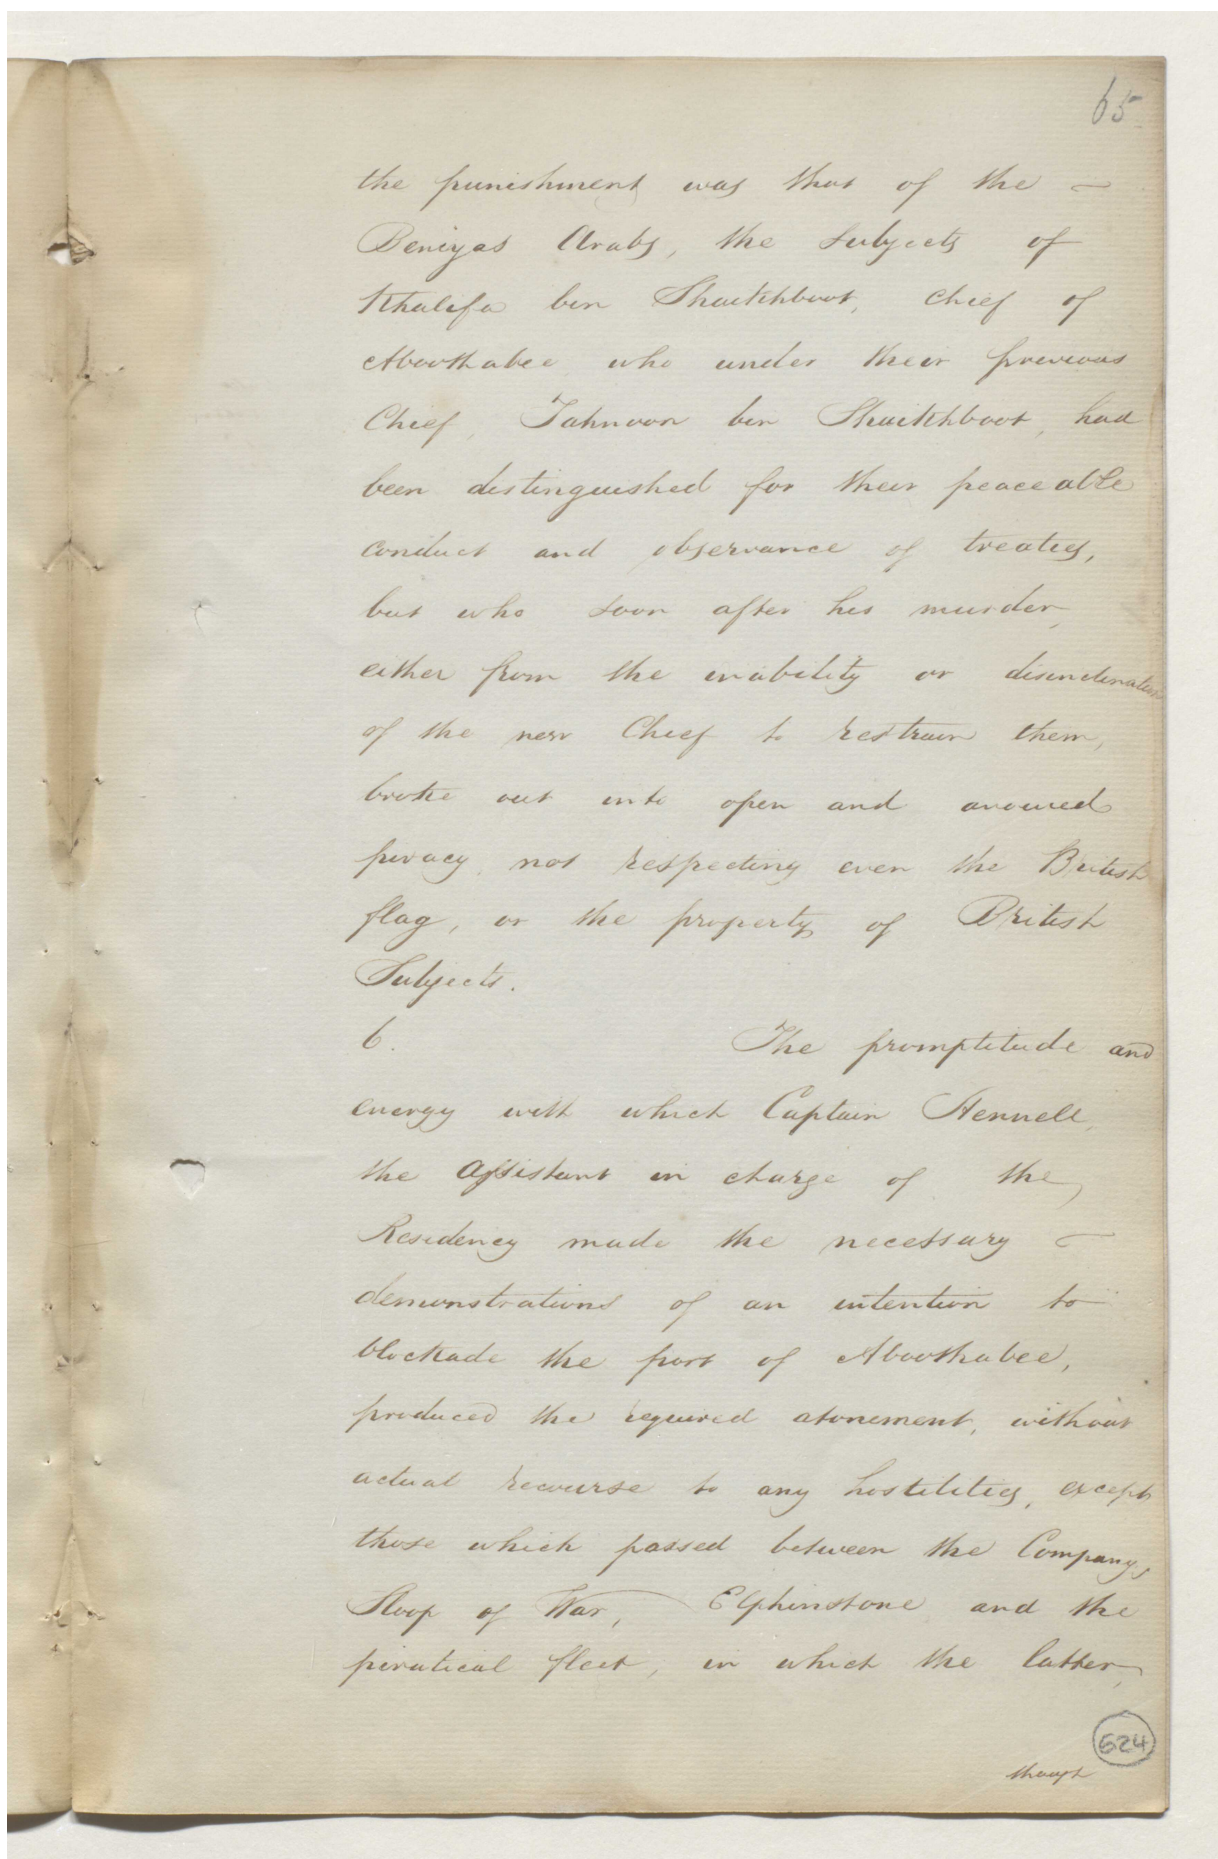 65
the punishment was that of the
Beniyas Arabs, the subjects of
Khalifa bin Shaikhboot, Chief of
Aboothabee who under their previous
Chief, Tahnoon bin Shaikhboot, had
been distinguished for their peaceable
conduct and observance of treaties,
but who soon after his murder,
either from the inability or disinclination
of the new Chief to restrain them,
broke out into open and avowed
piracy, not respecting even the British
flag, or the property of British
Subjects.
6. The promptitude and
energy with which Captain Hennell,
the Assistant in charge of the
Residency made the necessary
demonstrations of an intention to
blockade the port of Aboothabee,
produced the required atonement, without
actual recourse to any hostilities, except
those which passed between the Company's
Sloop of War, Elphinstone and the
piratical fleet, in which the latter,
624
though